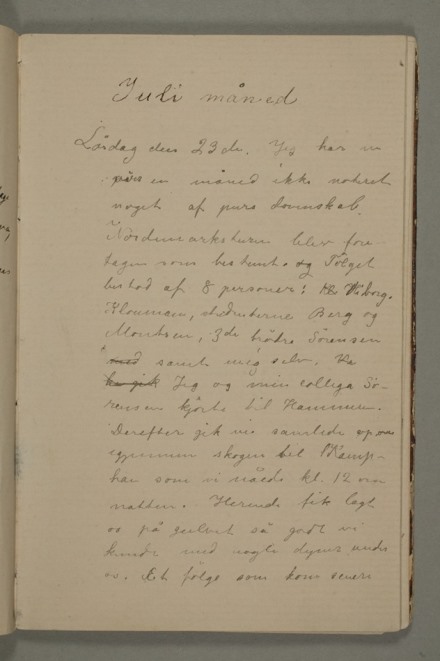 Juli måned
Lørdag den 23de. Jeg har nu
på en måned ikke noteret
noget af pura dovnskab.
Nordmarksturen blev fore-
tagen som bestemt. og Følget
bestod af 8 personer: Viborg,
Kloumann, studenterne Berg og
3de brødre Sörensen
med samt mig selv.
Jeg og min collega Sö-
rensen kjørte til Hammeren.
Derefter gik vi samtlede
gjennem skogen til Kamp-
hau som vi nåede kl. 12 om
natten. Herinde fik lagt
os på gulvet så godt vi
kunde med nogle dyner under
os. Et følge som kom senere